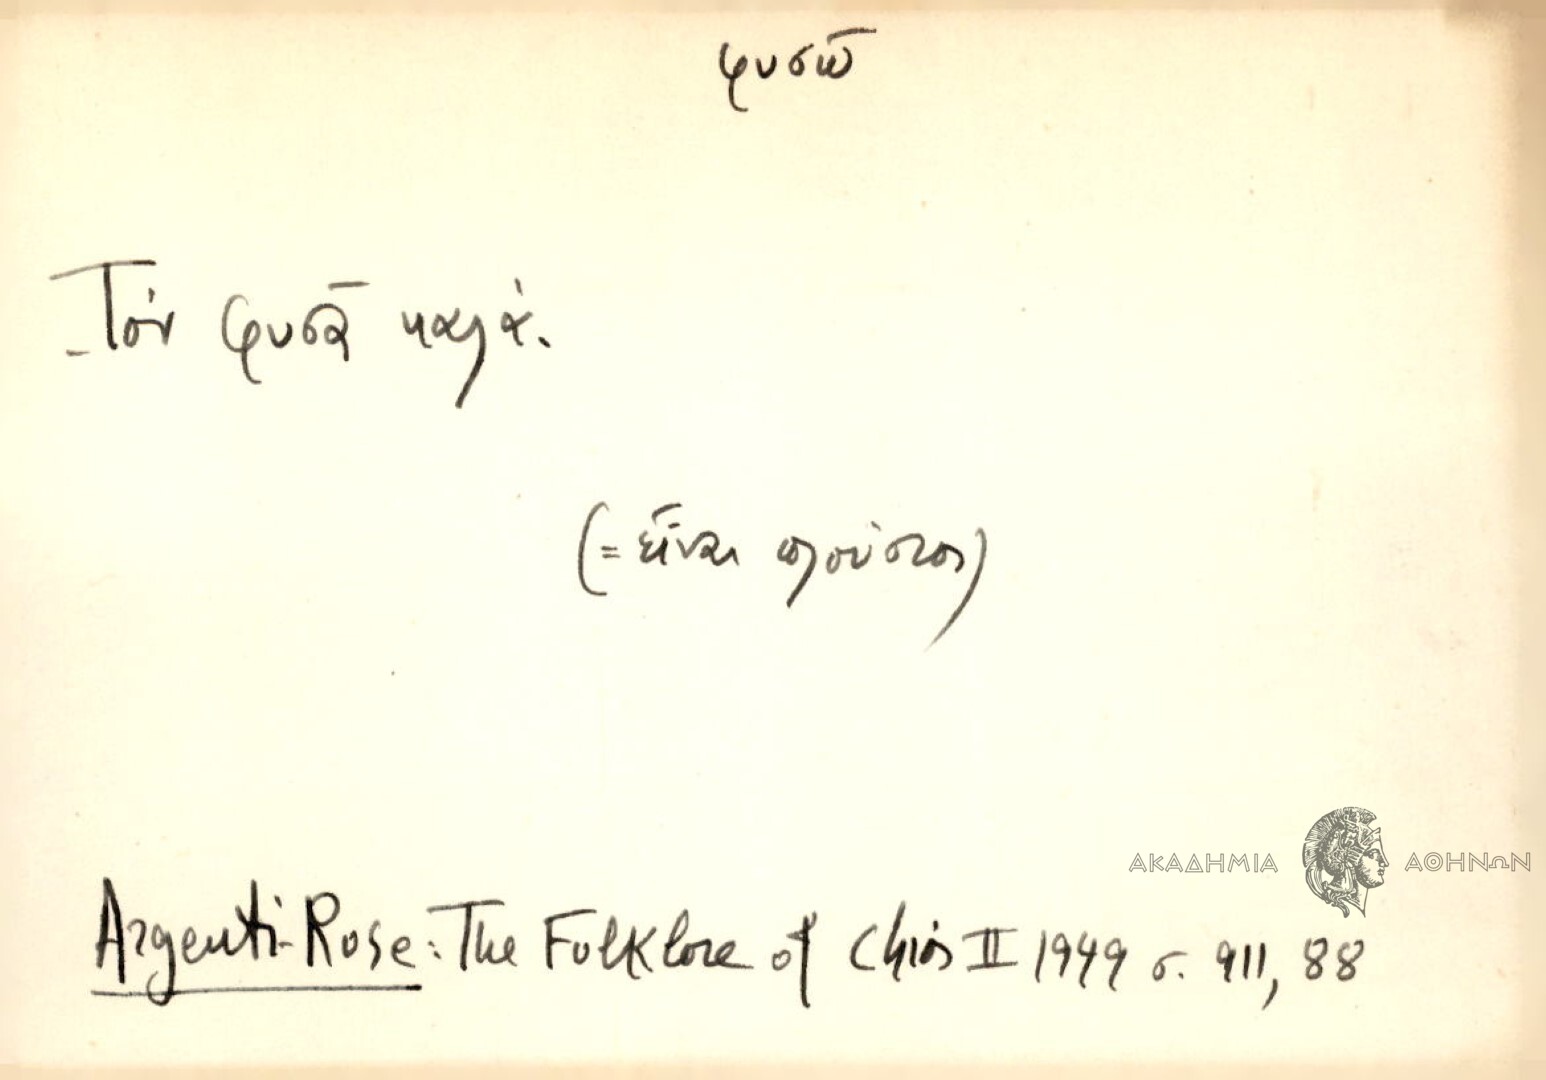 φυσῶ
- Τόν φυσᾶ καλά.
(= εἶναι πλούσιος)
ΑΚΑΔΗΜΙΑ ΑΘΗΝΩΝ
Argenti-Rose: The Folklore of Chios II 1949 σ. 911, 88